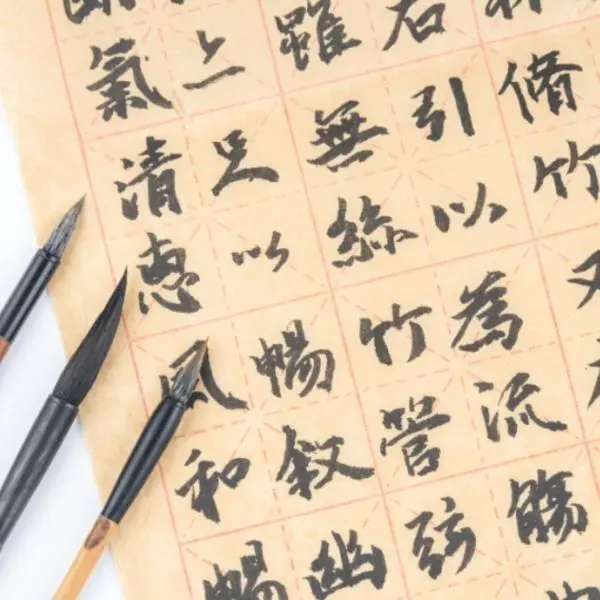 脩竹
右引以為流觴
雖無絲竹管弦
足以暢叙幽
氣清惠風和暢